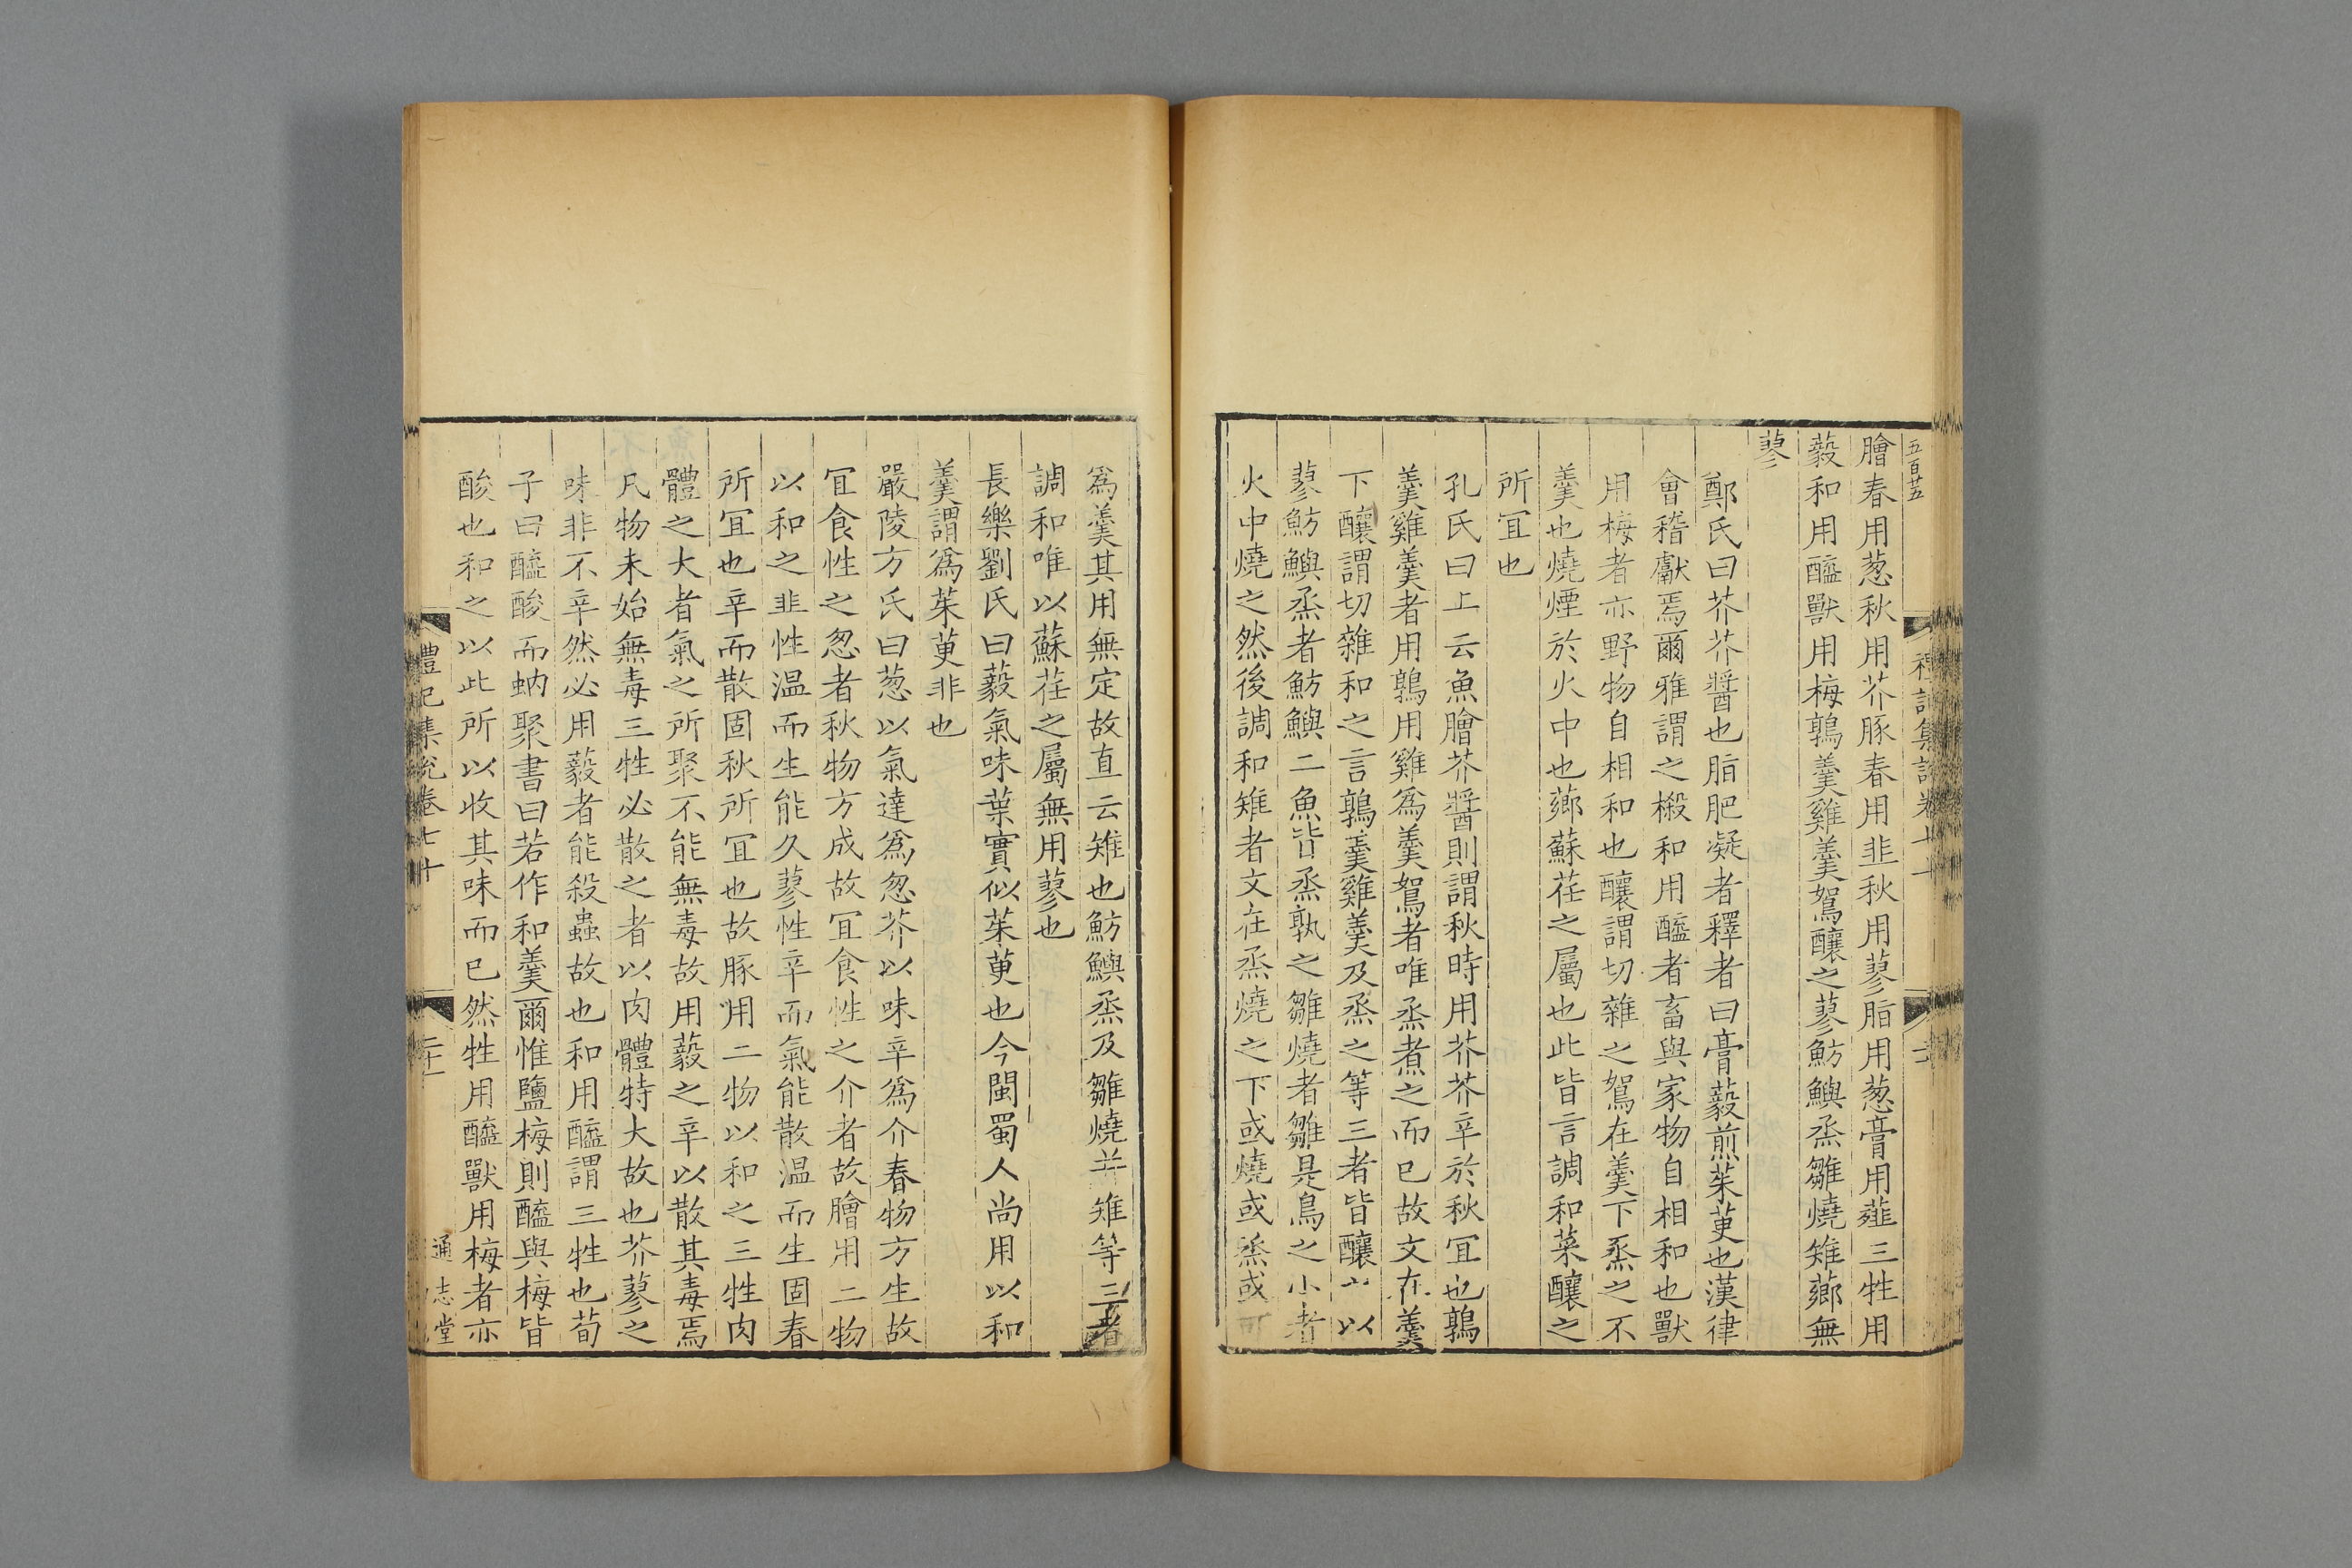 五百廿五
膾春用葱秋用芥豚春用韭秋用蓼脂用葱膏用薤三牲用
藙和用醯獸用梅鶉羹雞羹鴽釀之蓼魴鱮烝雛燒雉薌無
蓼
鄭氏曰芥芥醬也脂肥凝者釋者曰膏藙煎茱萸也漢律
會稽獻焉爾雅謂之榝和用醯者畜與家物自相和也獸
用梅者亦野物自相和也釀謂切雜之鴽在羹下烝之不
羹也燒煙於火中也薌蘇荏之屬也此皆言調和菜釀之
所冝也
孔氏曰上云魚膾芥醬則謂秋時用芥芥辛於秋冝也鶉
羹雞羹者用鶉用雞爲羹鴽者唯烝煮之而已故文在羹
下釀謂切雜和之言鶉羹雞羹及烝之等三者皆釀之以
蓼魴鱮烝者魴鱮二魚皆烝孰之雛燒者雛是鳥之小者
火中燒之然後調和雉者文在烝燒之下或燒或烝或可
爲羹其用無定故直云雉也魴鱮烝及雛燒并雉等三者
調和唯以蘇荏之屬無用蓼也
長樂劉氏曰藙氣味葉實似茱萸也今閩蜀人尚用以和
羹謂爲茱萸非也
嚴陵方氏曰葱以氣達爲怱芥以味辛爲介春物方生故
冝食性之怱者秋物方成故冝食性之介者故膾用二物
以和之韭性温而生能久蓼性辛而氣能散温而生固春
所冝也辛而散固秋所冝也故豚用二物以和之三牲肉
體之大者氣之所聚不能無毒故用藙之辛以散其毒焉
凡物未始無毒三牲必散之者以肉體特大故也芥蓼之
味非不辛然必用藙者能殺蟲故也和用醯謂三牲也荀
子曰醯酸而蚋聚書曰若作和羹爾惟鹽梅則醯與梅皆
酸也和之以此所以收其味而已然牲用醯獸用梅者亦
禮記集說卷七十
二十一
通志堂